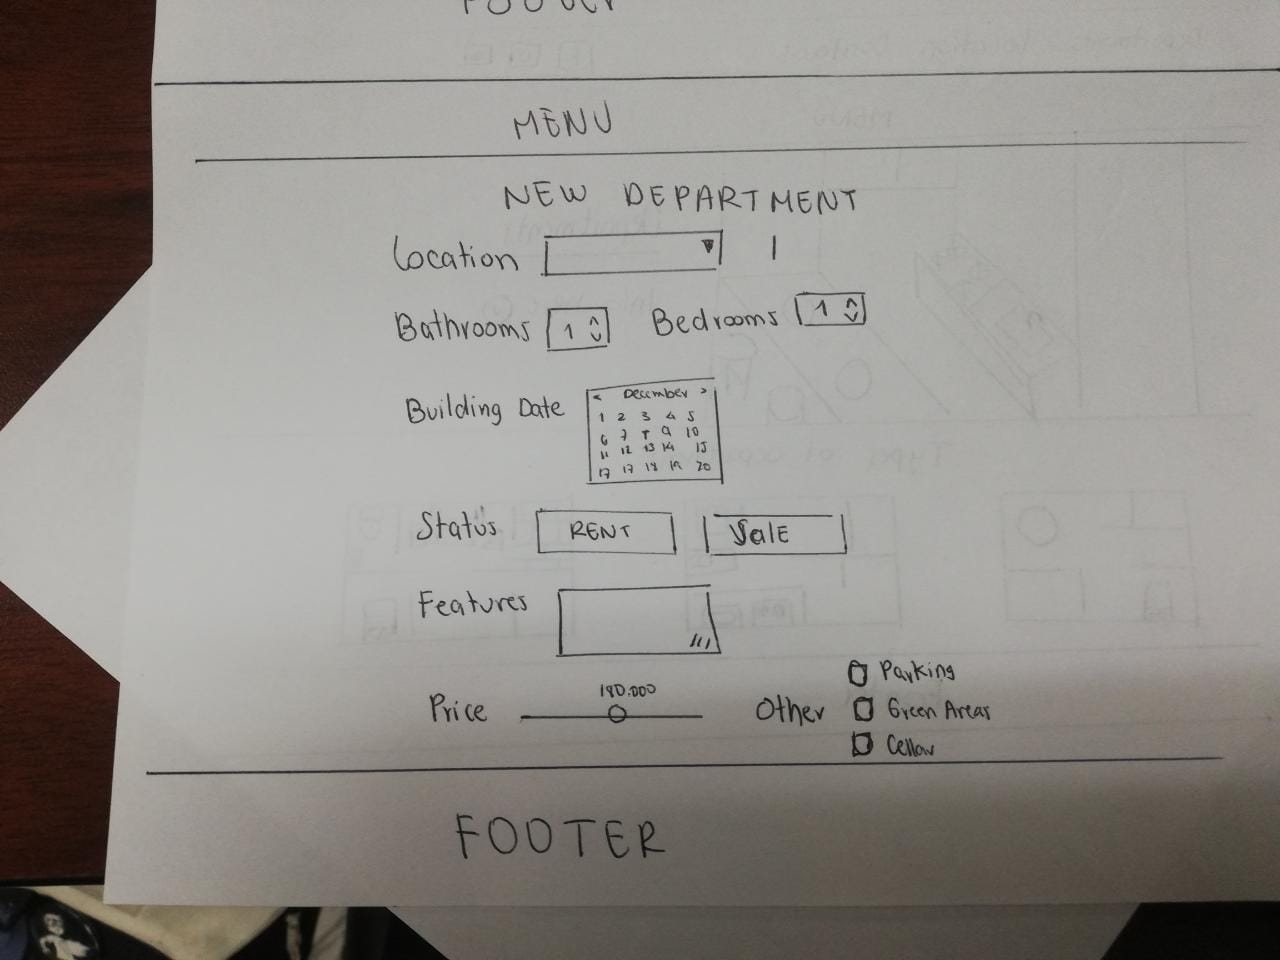 FOOTER
MENU
NEW DEPARTMENT
Location
Bathrooms 1 Bedrooms 1
Building Date
< December >
1 2 3 4 5
6 7 8 9 10
11 12 13 14 15
17 17 18 19 20
Status RENT Sale
Features
Parking
Price 180.000 Other Green Areas
Cellar
FOOTER